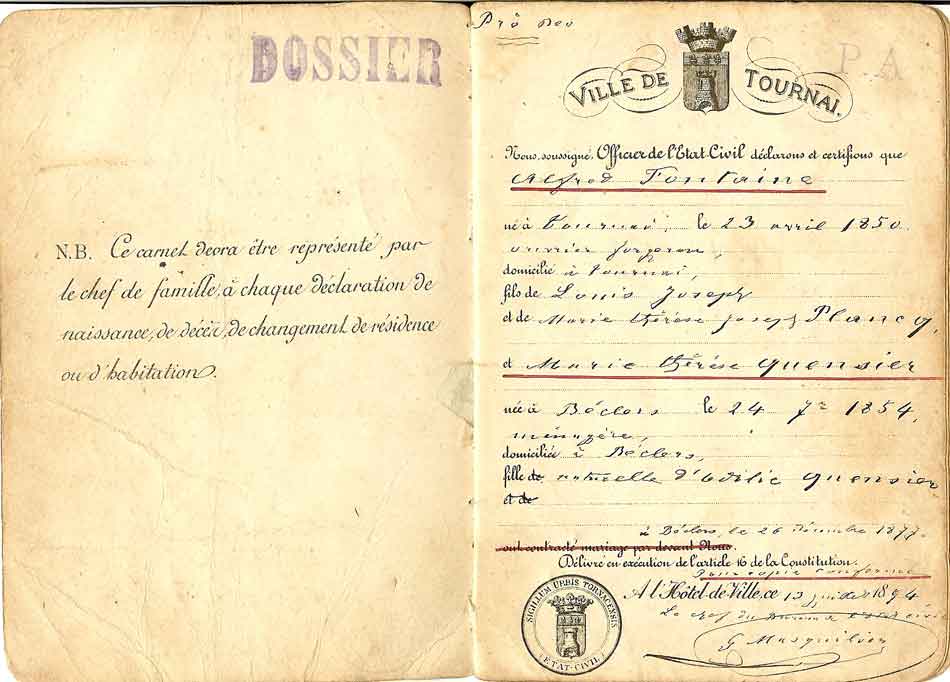 DOSSIER
N.B. Ce carnet devra être représenté par
le chef de famille, à chaque déclaration de
naissance, de décès, de changement de résidence
ou d'habitation.
Pro Deo
P A
VILLE DE TOURNAI.
Nous soussigné, Officier de l'Etat-Civil déclarons et certifions que
Alfred Fontaine
né à Tournai, le 23 avril 1850
ouvrier forgeron,
domicilié à Tournai,
fils de Louis Joseph
et de Marie Thérèse Joseph Plancq,
et Marie Thérèse Quensier
née à Béclers le 24 7re 1854,
ménagère,
domiciliée à Béclers,
fille de naturelle d'Odilie Quensier
et de
à Béclers, le 26 décembre 1877.
ont contracté mariage par devant Nous.
Délivré en exécution de l'article 16 de la Constitution.
Pour copie conforme
A l'Hôtel-de-Ville, ce 13 juillet 1894
Le chef du Bureau de l'Etat civil
SIGILLUM URBIS TORNACENSIS
ETAT-CIVIL